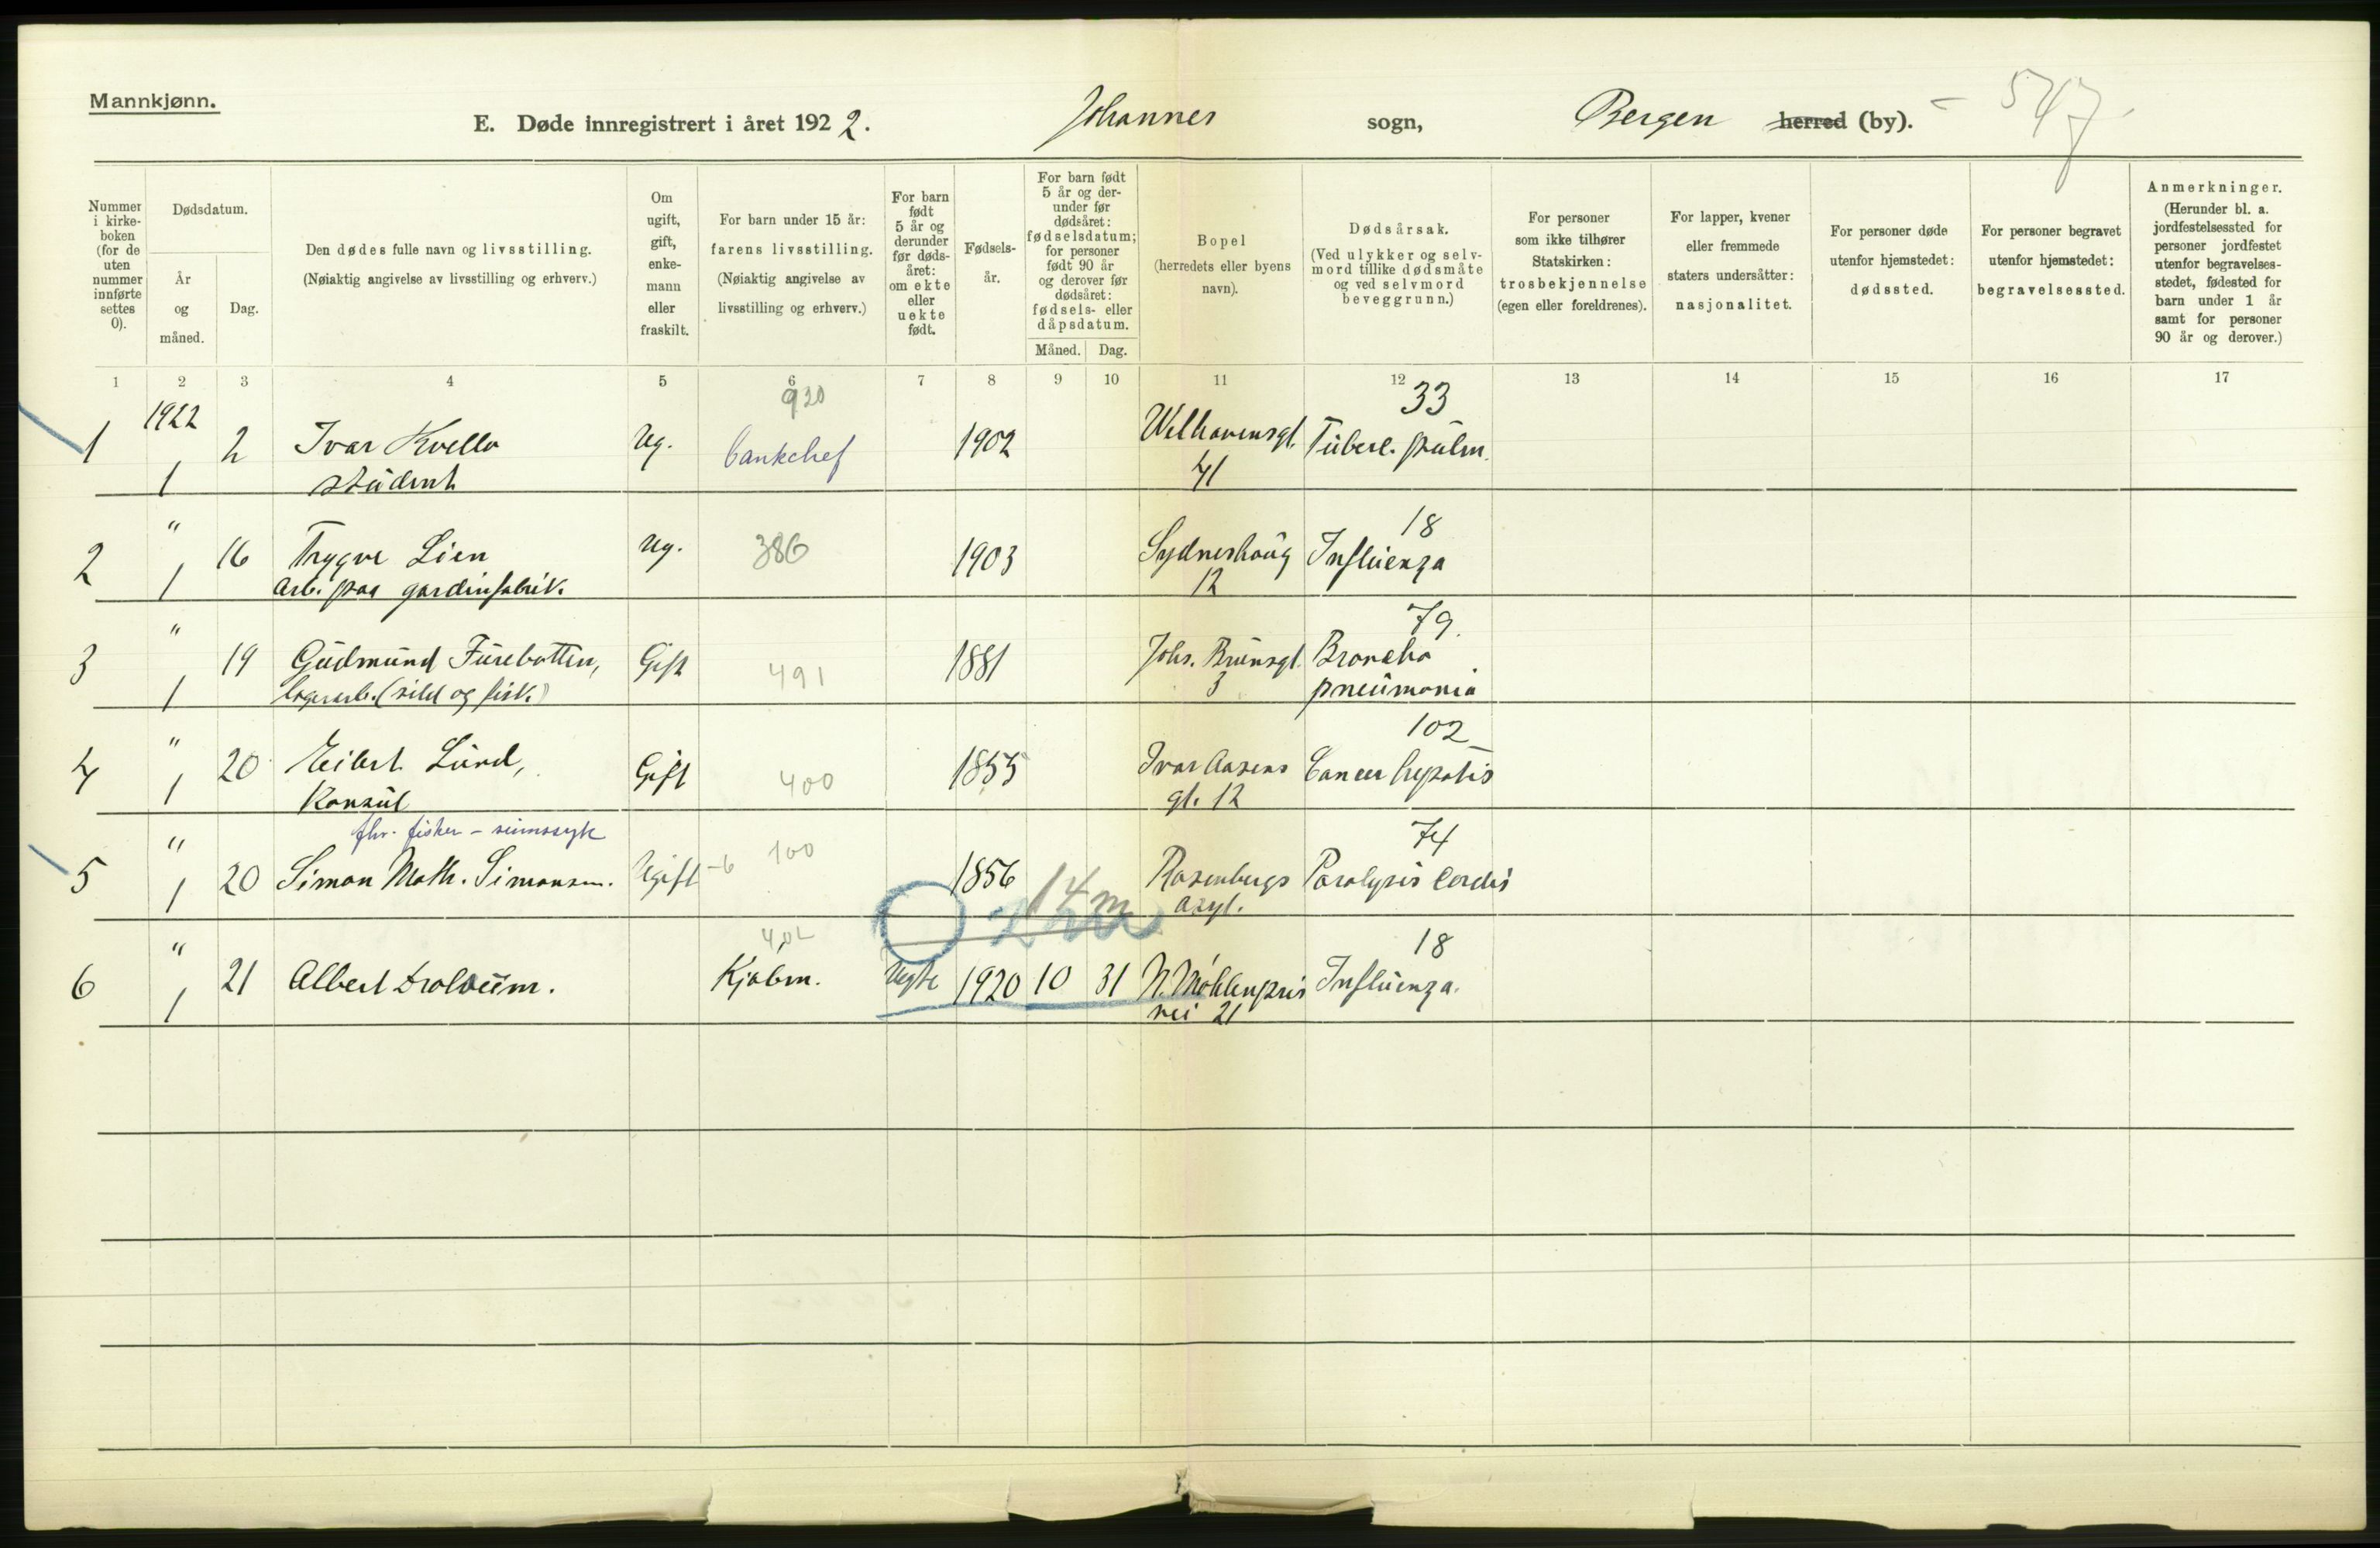 Mannkjønn.
E. Døde innregistrert i året 1922. Johannes sogn, Bergen herred (by). - 547
Nummer i kirke-boken (for de uten nummer innførte settes 0).
Dødsdatum.
År og måned.
Dag.
Den dødes fulle navn og livsstilling.
(Nøiaktig angivelse av livsstilling og erhverv.)
Om ugift, gift, enke-mann eller fraskilt.
For barn under 15 år: farens livsstilling.
(Nøiaktig angivelse av livsstilling og erhverv.)
For barn født 5 år og derunder før døds-året: om ekte eller uekte født.
Fødsels-år.
For barn født 5 år og der-under før dødsåret: fødselsdatum; for personer født 90 år og derover før dødsåret: fødsels- eller dåpsdatum.
Måned. Dag.
Bopel
(herredets eller byens navn).
Dødsårsak.
(Ved ulykker og selv-mord tillike dødsmåte og ved selvmord beveggrunn.)
For personer som ikke tilhører Statskirken: trosbekjennelse (egen eller foreldrenes).
For lapper, kvener eller fremmede staters undersåtter: nasjonalitet.
For personer døde utenfor hjemstedet: dødssted.
For personer begravet utenfor hjemstedet: begravelsessted.
Anmerkninger.
(Herunder bl. a. jordfestelsessted for personer jordfestet utenfor begravelses-stedet, fødested for barn under 1 år samt for personer 90 år og derover.)
1 2 3 4 5 6 7 8 9 10 11 12 13 14 15 16 17
1922 920 33
1 1 2 Ivar Kvello Ug. bankchef 1902 Welhavensgt. Tuberc. pulm.
student 41
" 18
2 1 16 Trygve Lien Ug. 386 1903 Sydneshaug Influenza
Arb. paa gardinfabrik. 12
" 79.
3 1 19 Gudmund Furebotten, Gift 491 1881 Johs. Brunsgt. Broncho
lagerarb. (sild og fisk.) 3 pneumonia
" 102
4 1 20 Eilert Lund, Gift 400 1855 Ivar Aasens Cancer hepatis
Konsul gt. 12
fhv. fisker - sinnssyk
" 100 74
5 1 20 Simon Math. Simonsen. Ugift -6 1856 Rosenbergs Paralysis cordis
14 m asyl.
" 402 18
6 1 21 Albert Drolsum. Kjøbm. Uegte 1920 10 31 N. Møhlenpris Influenza.
vei 21